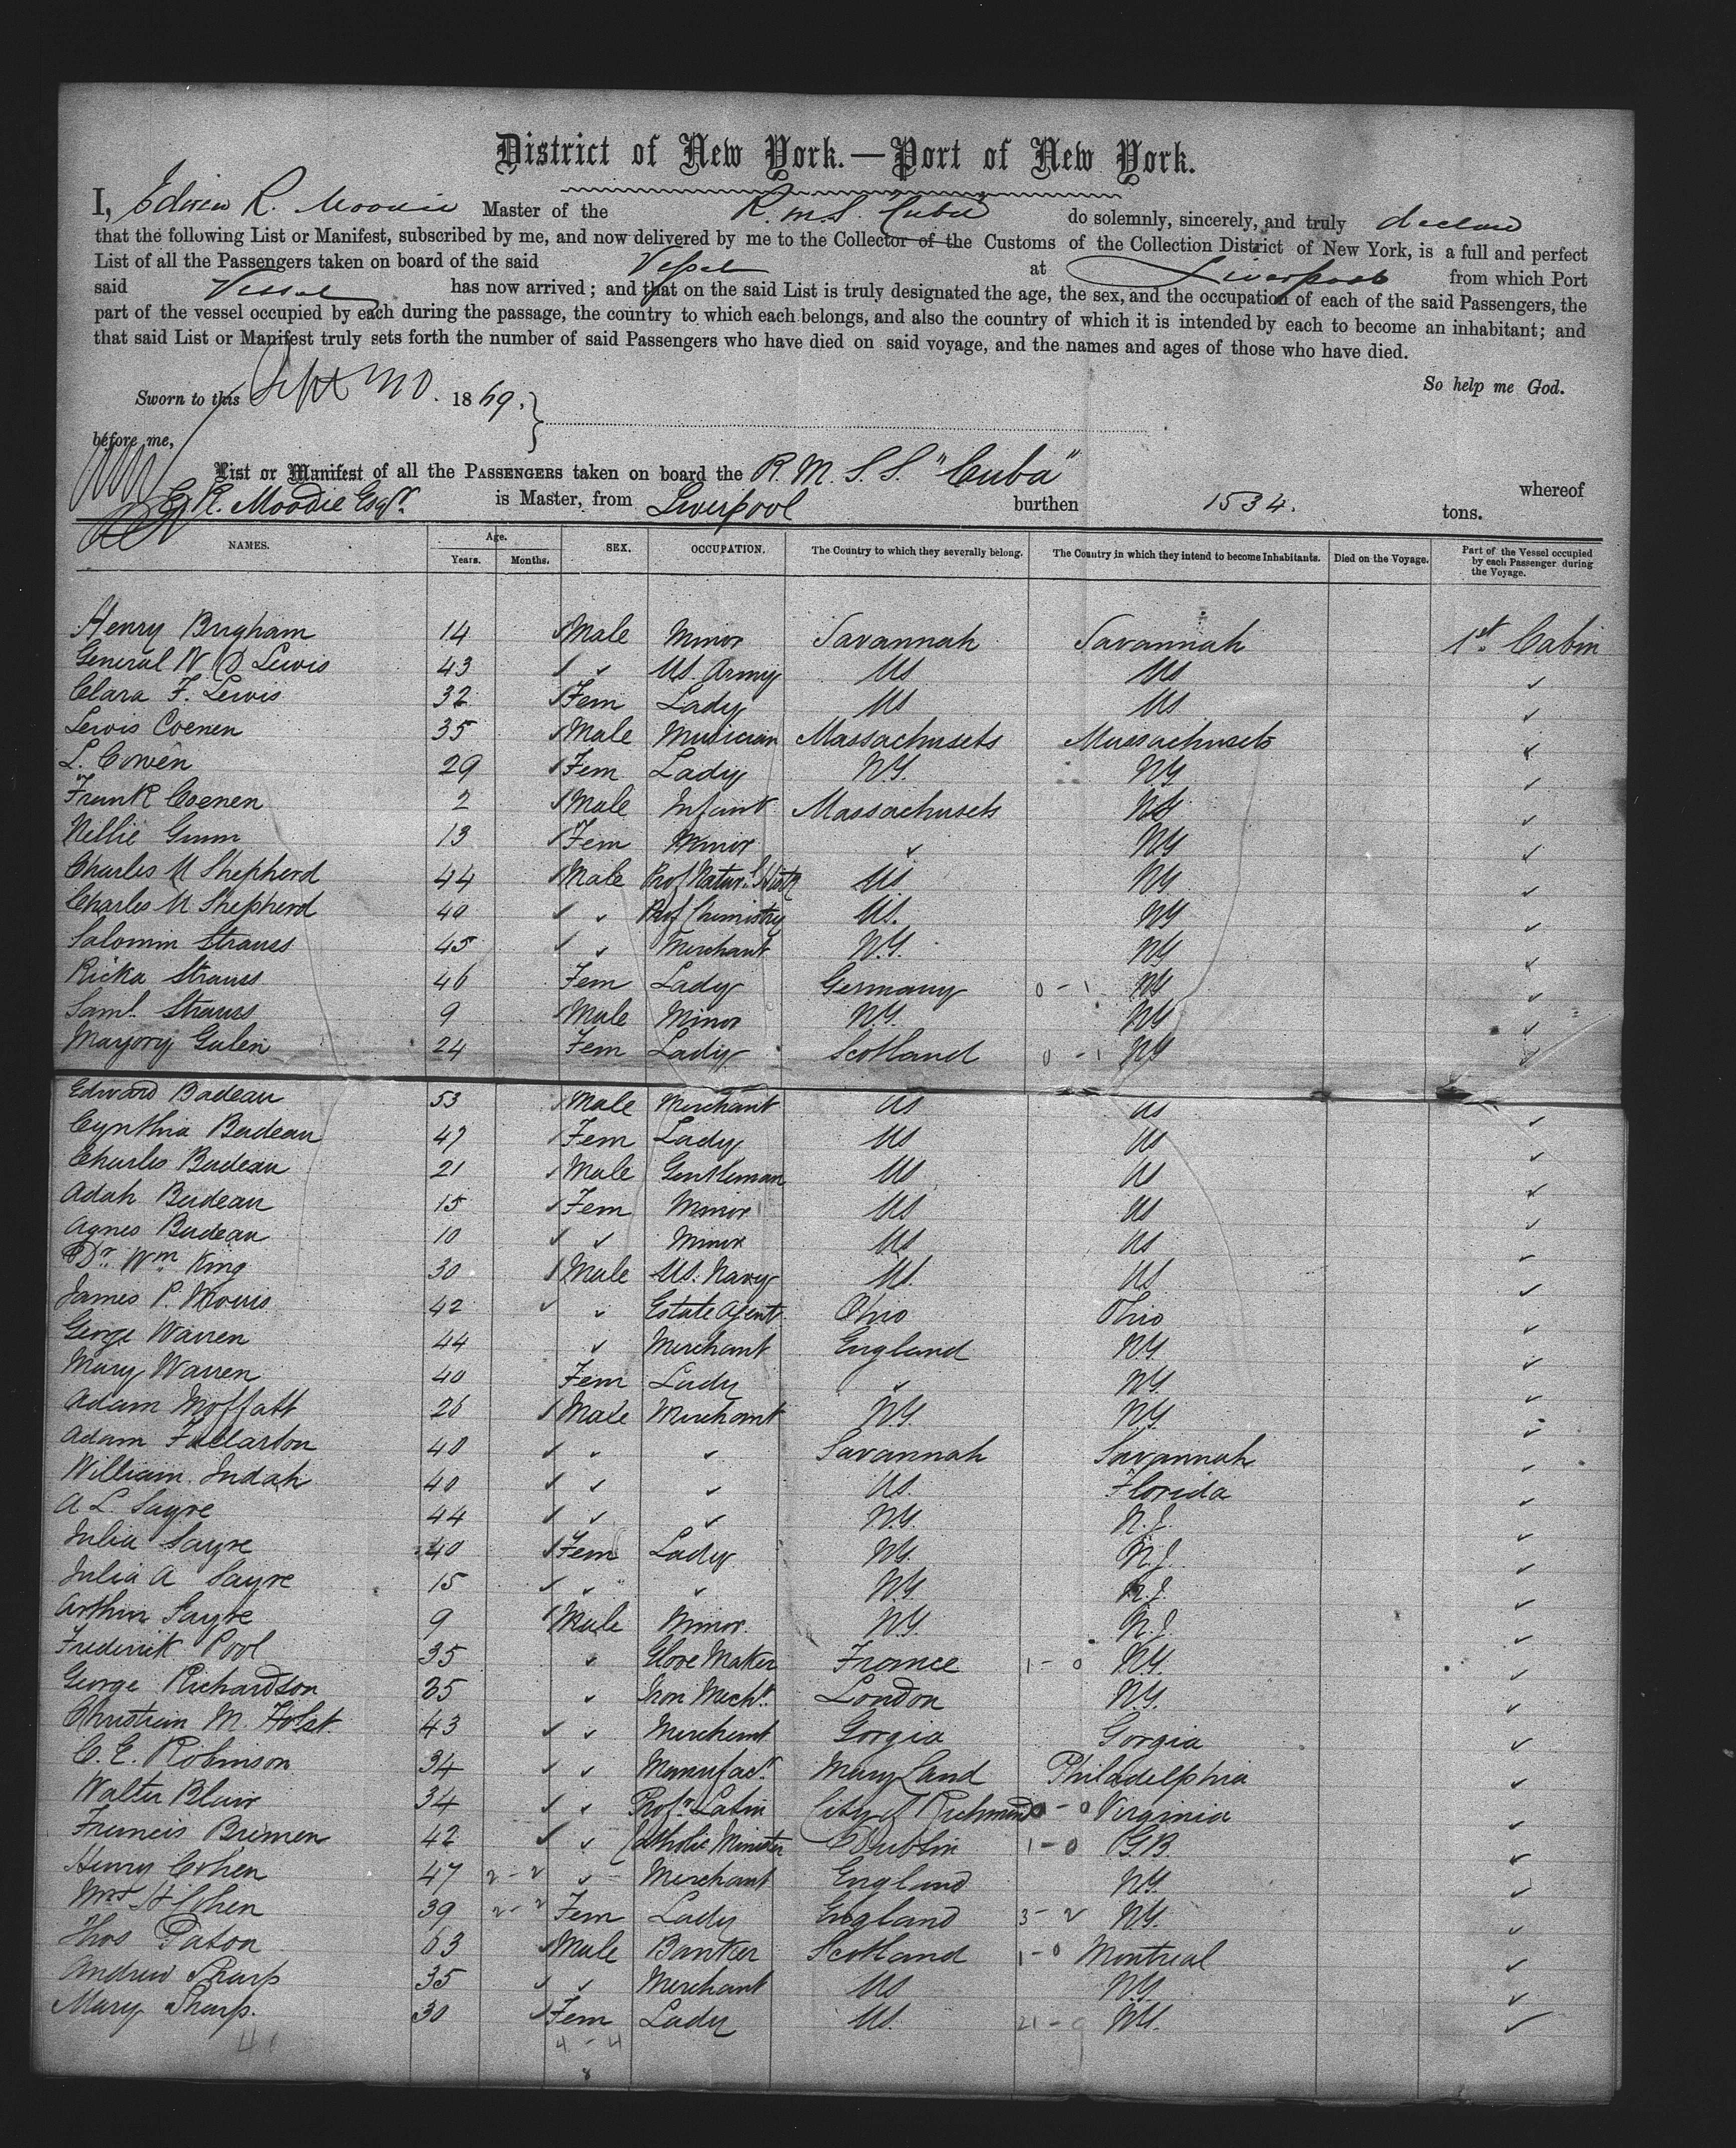 District of New York.—Port of New York.
I, Edwin R. Moodie Master of the R.M.S. Cuba do solemnly, sincerely, and truly declare
that the following List or Manifest, subscribed by me, and now delivered by me to the Collector of the Customs of the Collection District of New York, is a full and perfect
List of all the Passengers taken on board of the said Vessel at Liverpool from which Port
said Vessel has now arrived; and that on the said List is truly designated the age, the sex, and the occupation of each of the said Passengers, the
part of the vessel occupied by each during the passage, the country to which each belongs, and also the country of which it is intended by each to become an inhabitant; and
that said List or Manifest truly sets forth the number of said Passengers who have died on said voyage, and the names and ages of those who have died.
So help me God.
Sworn to this Sept 1869.
before me,
List or Manifest of all the PASSENGERS taken on board the R.M.S.S. "Cuba" whereof
E. R. Moodie Esqr. is Master, from Liverpool burthen 1534. tons.
NAMES. Age. Years. Months. SEX. OCCUPATION. The Country to which they severally belong. The Country in which they intend to become Inhabitants. Died on the Voyage. Part of the Vessel occupied by each Passenger during the Voyage.
Henry Brigham 14 Male Minor Savannah Savannah 1st Cabin
General W D Lewis 43 " US. Army US US "
Clara F. Lewis 32 Fem Lady US US "
Lewis Coenen 35 Male Musician Massachusets Massachusets "
L. Cowen 29 Fem Lady N.Y. NY "
Frank Coenen 2 Male Infant Massachusets NY "
Nellie Gunn 13 Fem Minor " NY "
Charles U Shepherd 44 Male Prof Natur. Hist US NY "
Charles U Shepherd 40 " Prof Chemistry US. NY "
Salomin Strauss 45 " Merchant N.Y. NY "
Ricka Strauss 46 Fem Lady Germany 0 - 1 NY "
Saml. Strauss 9 Male Minor N.Y. NY "
Marjory Gulen 24 Fem Lady Scotland 0 - 1 NY "
Edward Badeau 53 Male Merchant US US "
Cynthia Badeau 47 Fem Lady US US "
Charles Badeau 21 Male Gentleman US US "
Adah Badeau 15 Fem Minor US US "
Agnes Badeau 10 " Minor US US "
Dr. Wm. King 30 Male US. Navy US. US "
James P. Morris 42 " Estate Agent Ohio Ohio "
George Warren 44 " Merchant England N.Y. "
Mary Warren 40 Fem Lady " N.Y. "
Adam Moffatt 26 Male Merchant N.Y. N.Y. "
Adam Fullarton 40 " " Savannah Savannah "
William Judah 40 " " US. Florida "
A L. Sayre 44 " " N.Y. N.J. "
Julia Sayre 40 Fem Lady N.Y. N.J. "
Julia A Sayre 15 " " N.Y. N.J. "
Arthur Sayre 9 Male Minor. N.Y. N.J. "
Frederick Pool 35 " Glove Maker France 1 - 0 N.Y. "
George Richardson 25 " Iron Mecht. London N.Y. "
Christian M. Holst 43 " Merchant Gorgia Gorgia "
C. E. Robinson 34 " Manufacr. Mary Land Philadelphia "
Walter Blair 34 " Profr. Latin City of Richmond 0 - 0 Virginia "
Francis Bremen 42 " Catholic Minister Dublin 1 - 0 G.B. "
Henry Cohen 47 2 - 2 " Merchant England N.Y. "
Mrs H Cohen 39 2 - 2 Fem Lady England 3 - 2 N.Y. "
Thos Paton 63 Male Banker Scotland 1 - 0 Montreal "
Andrew Sharp 35 " Merchant US N.Y. "
Mary Sharp. 30 Fem Lady US. 21 - 9 N.Y. "
4 - 4
8